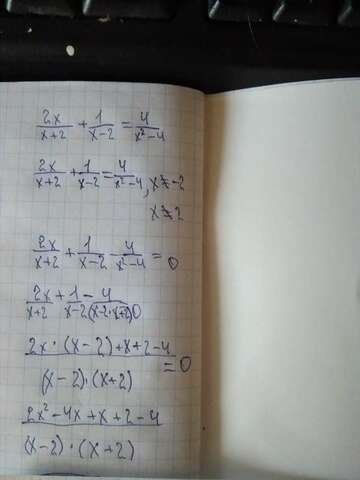 2x/(x+2) + 1/(x-2) = 4/(x²-4)
2x/(x+2) + 1/(x-2) = 4/(x²-4), x ≠ -2
x ≠ 2
2x/(x+2) + 1/(x-2) - 4/(x²-4) = 0
2x/(x+2) + 1/(x-2) - 4/((x-2)·(x+2)) 0
2x·(x-2)+x+2-4
= 0
(x-2)·(x+2)
2x²-4x+x+2-4
(x-2)·(x+2)